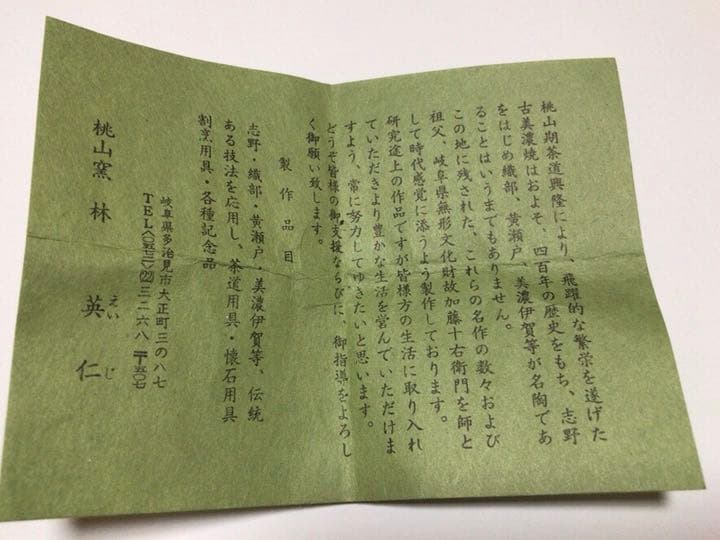 桃山期茶道興隆により、飛躍的な繁栄を遂げた
古美濃焼はおよそ、四百年の歴史をもち、志野
をはじめ織部、黄瀬戸、美濃伊賀等が名陶であ
ることはいうまでもありません。
この地に残された、これらの名作の数々および
祖父、岐阜県無形文化財故加藤十右衛門を師と
して時代感覚に添うよう製作しております。
研究途上の作品ですが皆様方の生活に取り入れ
ていただきより豊かな生活を営んでいただけま
すよう、常に努力してゆきたいと思います。
どうぞ皆様の御支援ならびに、御指導をよろし
く御願い致します。
製作品目
志野・織部・黄瀬戸・美濃伊賀等、伝統
ある技法を応用し、茶道用具・懐石用具
割烹用具・各種記念品
岐阜県多治見市大正町三の八七
TEL〈〇五七二〉(22)三二六八 〒五〇七
桃山窯 林 英仁
えいじ